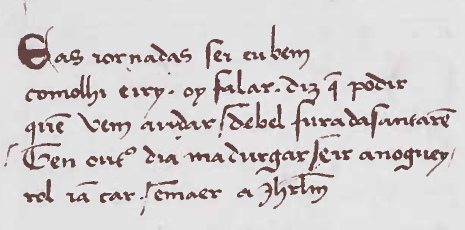 Eas iornadas sei eu bem
comolhi eiry. oy falar. diz q̃ podir
quẽ vem aurdar / debel furadasantarẽ
Een outº dia madurgar / seir anoguey/
rol iã car. / sẽmaer a Jhrl̃m